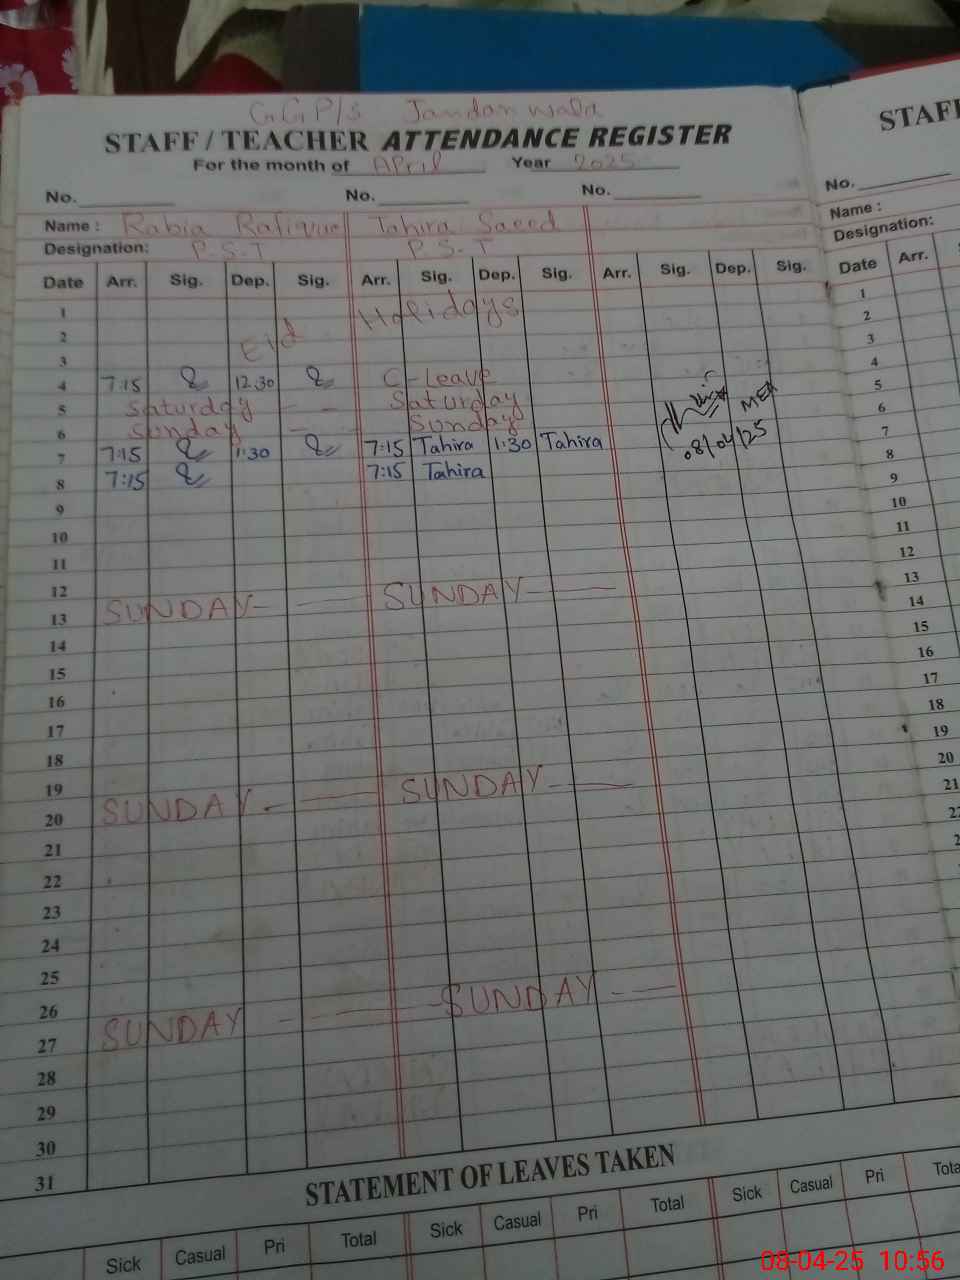 GGP/S Jandanwala
STAFF / TEACHER ATTENDANCE REGISTER
For the month of April Year 2025
No. No. No.
Name : Rabia Rafique Tahira Saeed
Designation: P.S.T P.S.T
Date Arr. Sig. Dep. Sig. Arr. Sig. Dep. Sig. Arr. Sig. Dep. Sig.
1 Eid Holidays
2
3
4 7:15 12.30 C-Leave
5 Saturday - - Saturday
6 Sunday - - Sunday
7 7:15 1:30 7:15 Tahira 1:30 Tahira
8 7:15 7:15 Tahira
MEA
08/04/25
9
10
11
12
13 SUNDAY - - SUNDAY - -
14
15
16
17
18
19
20 SUNDAY - - SUNDAY - -
21
22
23
24
25
26
27 SUNDAY - - SUNDAY - -
28
29
30
31
STATEMENT OF LEAVES TAKEN
Sick Casual Pri Total Sick Casual Pri Total Sick Casual Pri Tota
STAFF
No.
Name :
Designation:
Date Arr.
1
2
3
4
5
6
7
8
9
10
11
12
13
14
15
16
17
18
19
20
21
08-04-25 10:56